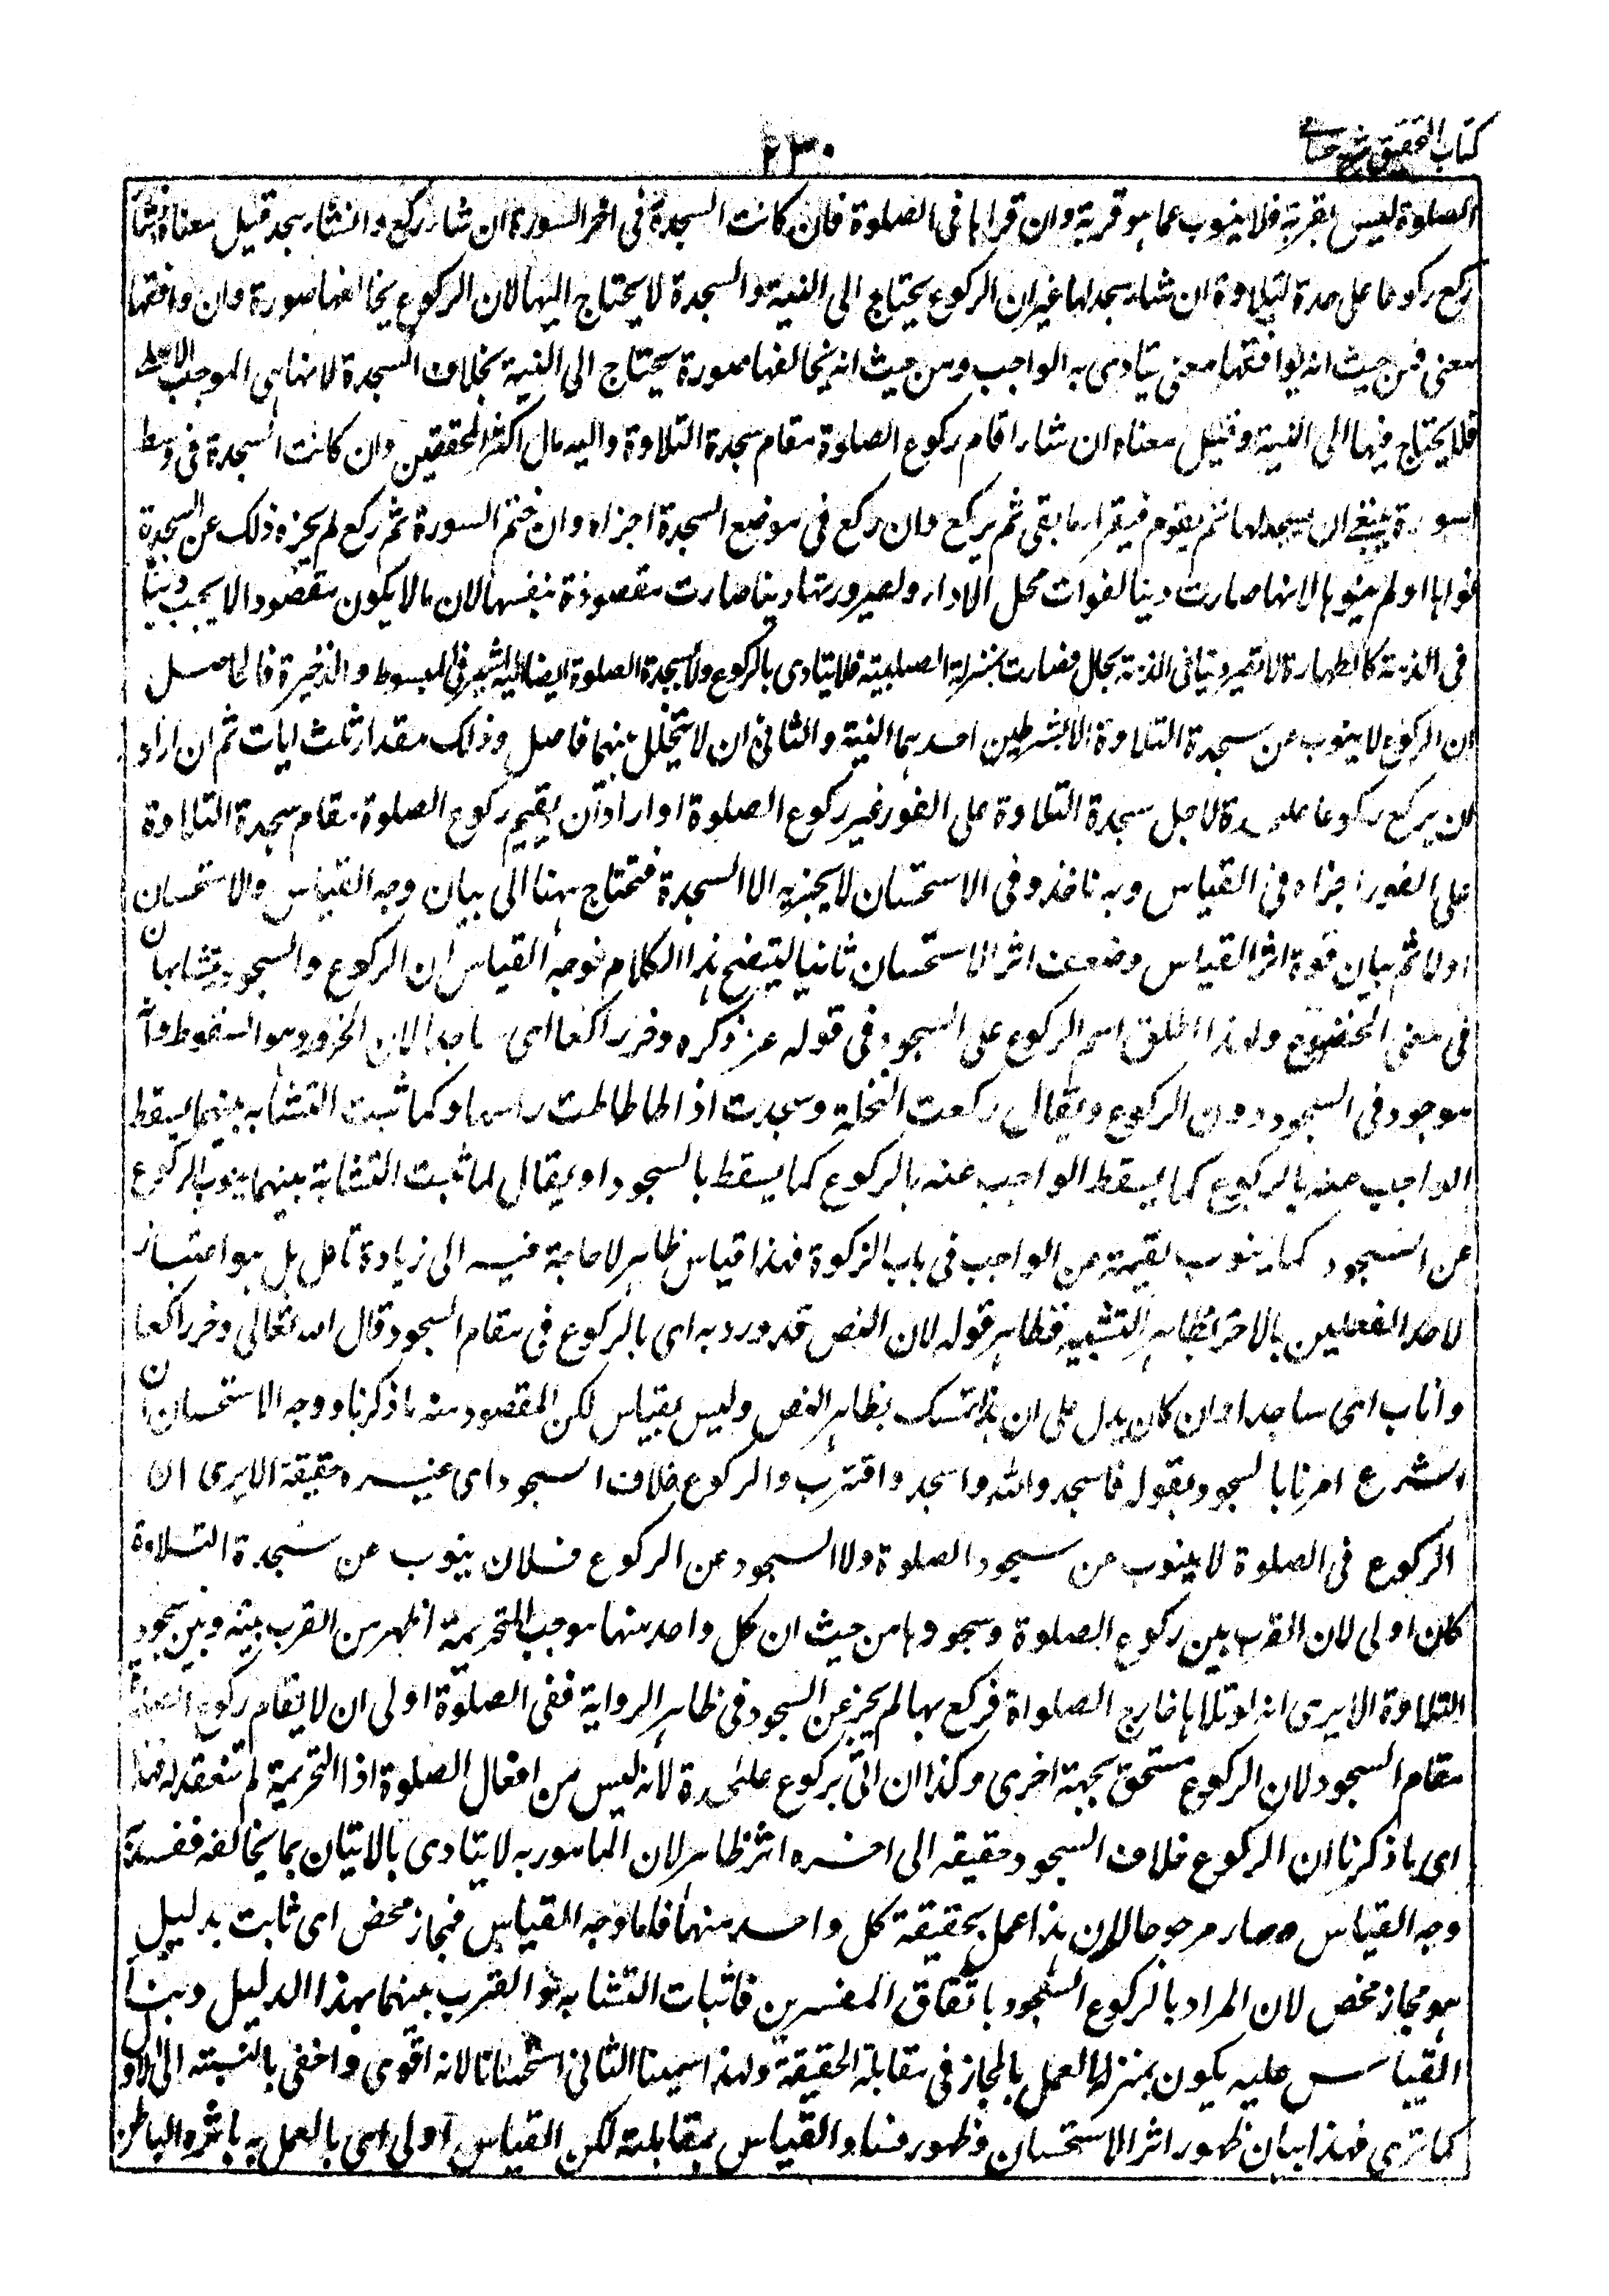 كتاب التحقيق شرح حسامى
٢٣٠
الصلوة ليس بقربة فلا ينوب عما هو قربة وان قراها فى الصلوة فان كانت السجدة فى اخر السورة ان شاء ركع وان شاء سجد قيل معناه ان شاء
ركع ركوعا على حدة لتلاوة ان شاء سجد لها غير ان الركوع يحتاج الى النية والسجدة لا يحتاج اليها لان الركوع يخالفها صورة وان وافقها
معنى فمن حيث انه يوافقها معنى يتادى به الواجب ومن حيث انه يخالفها صورة يحتاج الى النية بخلاف السجدة لانها هى الموجب الاصلى
فلا يحتاج فيها الى النية وقيل معناه ان شاء اقام ركوع الصلوة مقام سجدة التلاوة واليه مال اكثر المحققين وان كانت السجدة فى وسط
السورة ينبغى ان يسجد لها ثم يقوم فيقرا ما بقى ثم يركع وان ركع فى موضع السجدة اجزاه وان ختم السورة ثم ركع لم يجزه ذلك عن السجدة
نواها او لم ينوها لانها صارت دينا لفوات محل الاداء ولصيرورتها دينا صارت مقصودة بنفسها لان ما لا يكون مقصودا لا يجب دينا
فى الذمة كالطهارة لا تصير دينا فى الذمة بحال فصارت بمنزلة الصلبية فلا يتادى بالركوع ولا بسجدة الصلوة ايضا اليه اشير فى المبسوط والذخيرة فالحاصل
ان الركوع لا ينوب عن سجدة التلاوة الا بشرطين احدهما النية والثانى ان لا يتخلل بينهما فاصل وذلك مقدار ثلث ايات ثم ان اراد
ان يركع ركوعا على حدة لاجل سجدة التلاوة على الفور غير ركوع الصلوة او اراد ان يقيم ركوع الصلوة مقام سجدة التلاوة
على الفور اجزاه فى القياس وبه ناخذ وفى الاستحسان لا يجزيه الا السجدة فتحتاج ههنا الى بيان وجه القياس والاستحسان
اولا ثم بيان قوة اثر القياس وضعف اثر الاستحسان ثانيا ليتضح هذا الكلام فوجه القياس ان الركوع والسجود يتشابهان
فى معنى الخضوع ولهذا اطلق اسم الركوع على السجود فى قوله عز ذكره وخر راكعا اى ساجدا لان الخرور وهو السقوط
موجود فى السجود دون الركوع ويقال ركعت النخلة وسجدت اذا طاطات راسها وكما ثبت التشابه بينهما يسقط
الواجب عنه بالركوع كما يسقط الواجب عنه بالركوع كما يسقط بالسجود او يقال لما ثبت التشابه بينهما ينوب الركوع
عن السجود كما ينوب القيمة عن الواجب فى باب الزكوة فهذا قياس ظاهر لا حاجة فيه الى زيادة تامل بل هو اعتبار
لاحد الفعلين بالاخر بظاهر التشبيه فظاهر قوله لان النص قد ورد به اى بالركوع فى مقام السجود قال الله تعالى وخر راكعا
واناب اى ساجدا وان كان يدل على ان هذا تمسك بظاهر النص وليس بقياس لكن المقصود منه ما ذكرنا ووجه الاستحسان ان
الشرع امرنا بالسجود بقوله فاسجدوا لله واسجد واقترب والركوع خلاف السجود اى غيره حقيقة الا يرى ان
الركوع فى الصلوة لا ينوب عن سجود الصلوة ولا السجود عن الركوع فلان ينوب عن سجدة التلاوة
كان اولى لان القرب بين ركوع الصلوة وسجودها من حيث ان كل واحد منهما موجب التحريمة اظهر من القرب بينه وبين سجود
التلاوة الا يرى انه لو تلاها خارج الصلواة فركع بها لم يجز عن السجود فى ظاهر الرواية ففى الصلوة اولى ان لا يقام ركوع الصلوة
مقام السجود لان الركوع مستحق بجهة اخرى وكذا ان اتى بركوع على حدة لانه ليس من افعال الصلوة اذا التحريمة لم تنعقد له فهذا
اى ما ذكرنا ان الركوع خلاف السجود حقيقة الى اخره اثر ظاهر لان المامور به لا يتادى بالاتيان بما يخالفه ففسد به
وجه القياس وصار مرجوحا لان هذا عمل بحقيقة كل واحد منهما فاما وجه القياس فمجاز محض اى ثابت بدليل
هو مجاز محض لان المراد بالركوع السجود باتفاق المفسرين فاثبات التشابه والقرب بينهما بهذا الدليل وبناء
القياس عليه يكون بمنزلة العمل بالمجاز فى مقابلة الحقيقة ولهذا سمينا الثانى استحسانا لانه اقوى واخفى بالنسبة الى الاول
كما ترى فهذا بيان ظهور اثر الاستحسان وظهور فساد القياس بمقابلته لكن القياس اولى اى بالعمل به باثره الباطن